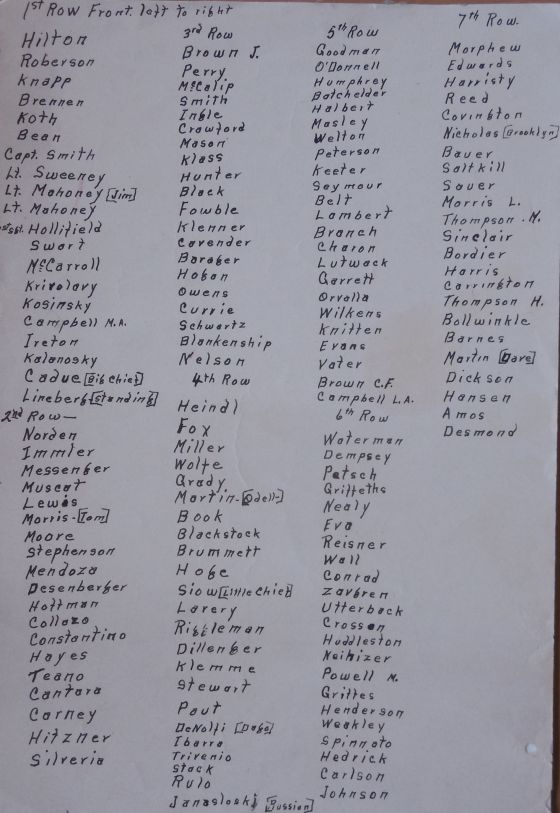 1st Row Front. left to right
Hilton
Roberson
Knapp
Brennen
Koth
Bean
Capt. Smith
Lt. Sweeney
Lt. Mahoney [Jim]
Lt. Mahoney
1st Sgt. Hollifield
Swart
McCarroll
Krivolavy
Kosinsky
Campbell M.A.
Ireton
Kalanosky
Cadue [Big Chief]
Lineberg [standing]
2nd Row—
Norden
Immler
Messenger
Muscat
Lewis
Morris-[Tom]
Moore
Stephenson
Mendoza
Desenberger
Hoffman
Collazo
Constantino
Hayes
Teano
Cantara
Carney
Hitzner
Silveria
3rd Row
Brown J.
Perry
McCalip
Smith
Ingle
Crawford
Mason
Klass
Hunter
Black
Fowble
Klenner
Cavender
Barager
Hogan
Owens
Currie
Schwartz
Blankenship
Nelson
4th Row
Heindl
Fox
Miller
Wolfe
Grady
Martin-[Odell-]
Book
Blackstock
Brummett
Hoge
Siow [Little Chief]
Lavery
Riggleman
Dillenger
Klemme
Stewart
Paut
DeNolfi [Dags]
Ibarra
Trivenio
Stack
Rulo
Janasloski [Russian]
5th Row
Goodman
O'Donnell
Humphrey
Batchelder
Halbert
Masley
Welton
Peterson
Keeter
Seymour
Belt
Lambert
Branch
Charon
Lutwack
Garrett
Orvalla
Wilkens
Knitten
Evans
Vater
Brown C.F.
Campbell L.A.
6th Row
Waterman
Dempsey
Patsch
Griffeths
Nealy
Eva
Reisner
Wall
Conrad
Zavgren
Utterback
Crossen
Huddleston
Neihizer
Powell M.
Griffes
Henderson
Weakley
Spinnato
Hedrick
Carlson
Johnson
7th Row.
Morphew
Edwards
Harristy
Reed
Covington
Nicholas [Brooklyn]
Bauer
Saltkill
Sauer
Morris L.
Thompson. M.
Sinclair
Bordier
Harris
Carrington
Thompson H.
Bollwinkle
Barnes
Martin [Dave]
Dickson
Hansen
Amos
Desmond